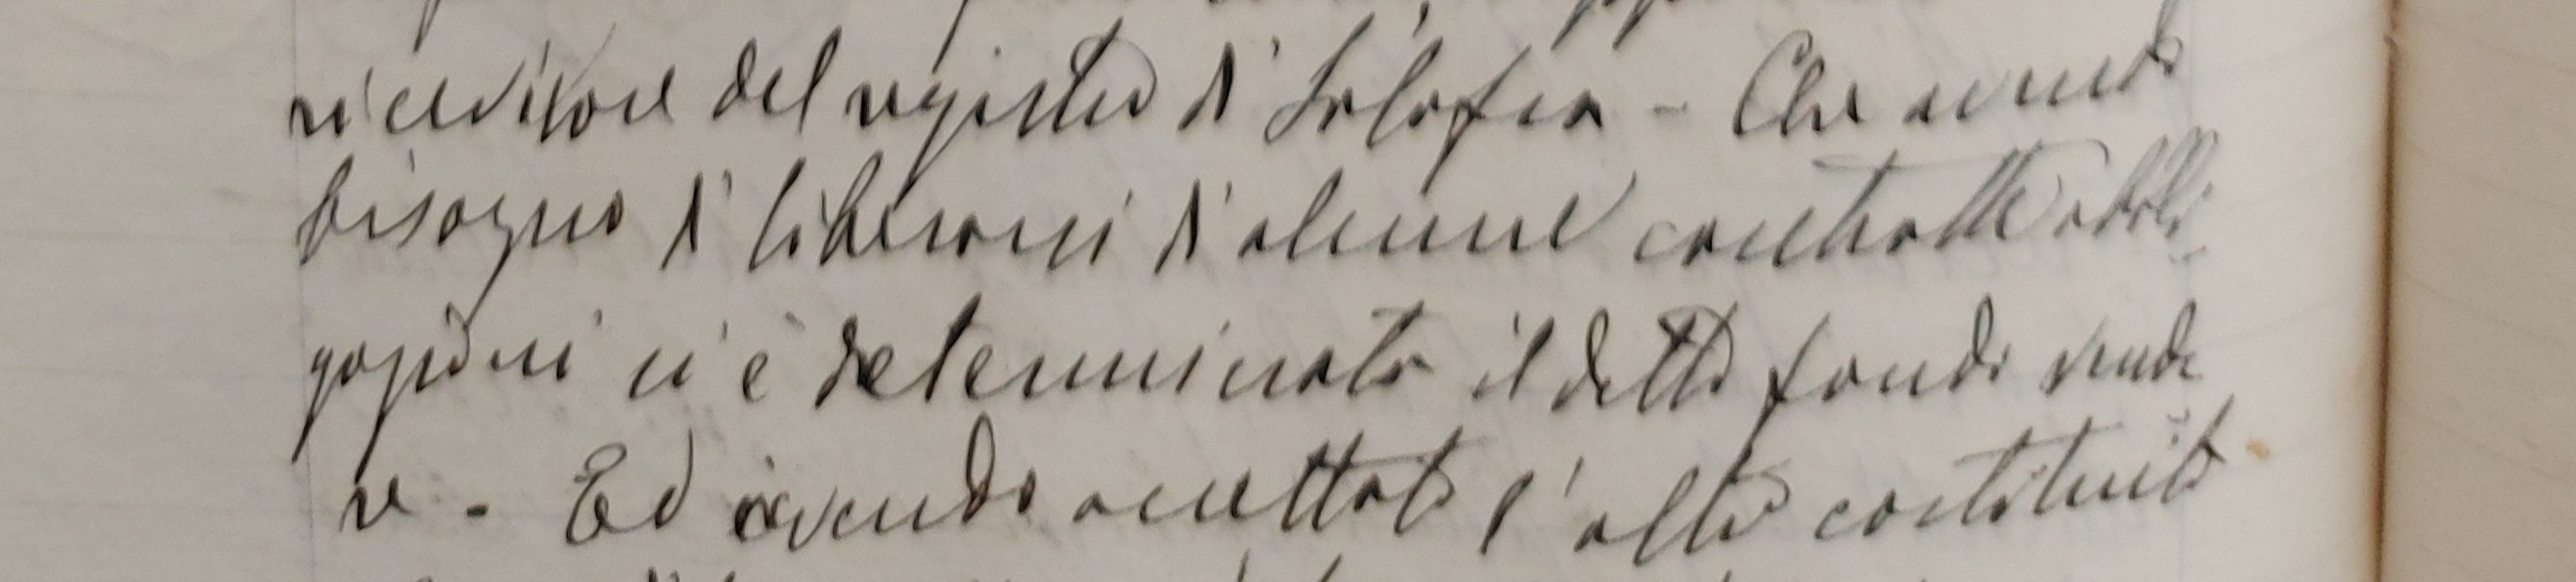 ricevitore del registro di Solofra - Che avendo
bisogno di liberarsi di alcune contratte obbli-
gazioni si è determinato il detto fondo vende
re - Ed avendo accettato l'altro costituito